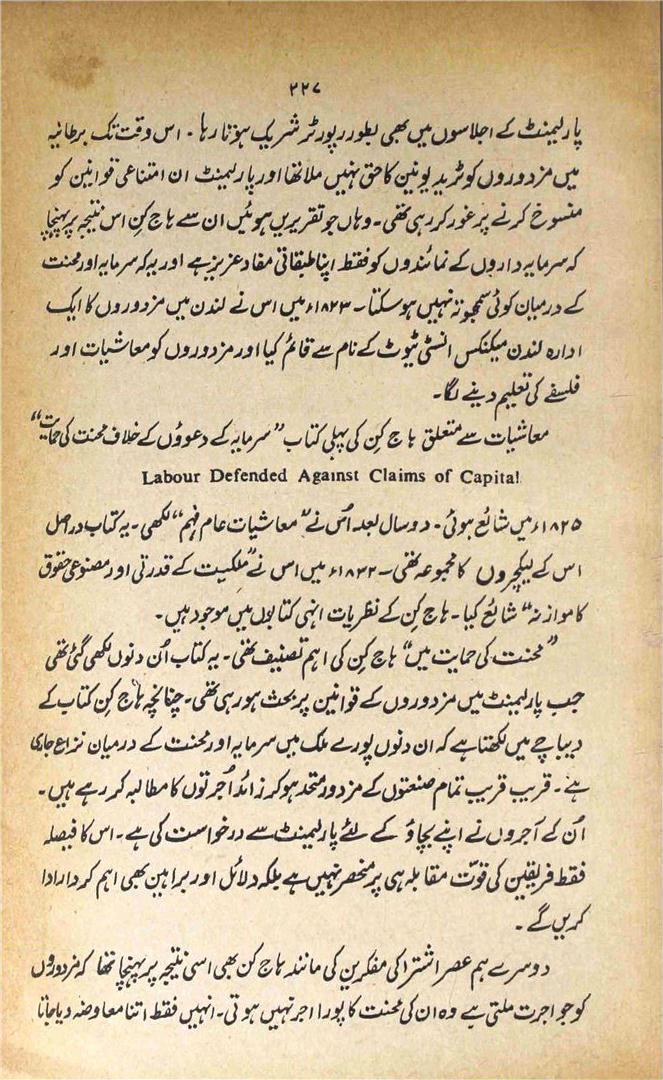 ۲۲۷
پارلیمنٹ کے اجلاسوں میں بھی بطور رپورٹر شریک ہوتا رہا۔ اس وقت تک برطانیہ
میں مزدوروں کو ٹریڈ یونین کا حق نہیں ملا تھا اور پارلیمنٹ ان امتناعی قوانین کو
منسوخ کرنے پر غور کر رہی تھی۔ وہاں جو تقریریں ہوئیں ان سے ہاج کن اس نتیجہ پر پہنچا
کہ سرمایہ داروں کے نمائندوں کو فقط اپنا طبقاتی مفاد عزیز ہے اور یہ کہ سرمایہ اور محنت
کے درمیان کوئی سمجھوتہ نہیں ہو سکتا۔ ۱۸۲۳ء میں اس نے لندن میں مزدوروں کا ایک
ادارہ لندن میکنکس انسٹی ٹیوٹ کے نام سے قائم کیا اور مزدوروں کو معاشیات اور
فلسفے کی تعلیم دینے لگا۔
معاشیات سے متعلق ہاج کن کی پہلی کتاب ”سرمایہ کے دعووں کے خلاف محنت کی حمایت“
Labour Defended Against Claims of Capital
۱۸۲۵ء میں شائع ہوئی۔ دو سال بعد اُس نے ”معاشیات عام فہم“ لکھی۔ یہ کتاب دراصل
اس کے لیکچروں کا مجموعہ تھی۔ ۱۸۳۲ء میں اس نے ”ملکیت کے قدرتی اور مصنوعی حقوق
کا موازنہ“ شائع کیا۔ ہاج کن کے نظریات انہی کتابوں میں موجود ہیں۔
”محنت کی حمایت میں“ ہاج کن کی اہم تصنیف تھی۔ یہ کتاب اُن دنوں لکھی گئی تھی
جب پارلیمنٹ میں مزدوروں کے قوانین پر بحث ہو رہی تھی۔ چنانچہ ہاج کن کتاب کے
دیباچے میں لکھتا ہے کہ ان دنوں پورے ملک میں سرمایہ اور محنت کے درمیان نزاع جاری
ہے۔ قریب قریب تمام صنعتوں کے مزدور متحد ہو کر زائد اُجرتوں کا مطالبہ کر رہے ہیں۔
اُن کے آجروں نے اپنے بچاؤ کے لئے پارلیمنٹ سے درخواست کی ہے۔ اس کا فیصلہ
فقط فریقین کی قوّت مقابلہ ہی پر منحصر نہیں ہے بلکہ دلائل اور براہین بھی اہم کردار ادا
کریں گے۔
دوسرے ہم عصر اشتراکی مفکرین کی مانند ہاج کن بھی اسی نتیجہ پر پہنچا تھا کہ مزدوروں
کو جو اجرت ملتی ہے وہ ان کی محنت کا پورا اجر نہیں ہوتی۔ انہیں فقط اتنا معاوضہ دیا جاتا